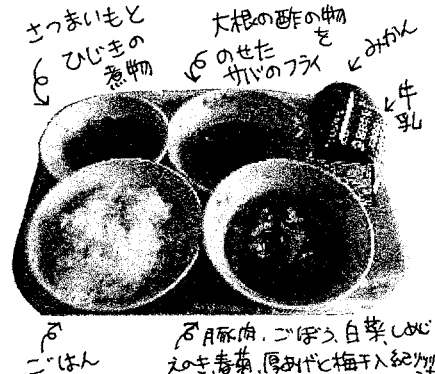 さつまいもと
ひじきの
煮物
大根の酢の物
を
のせた
サバのフライ
みかん
牛
乳
ごはん
豚肉、ごぼう、白菜、しめじ
えのき、春菊、厚あげと梅干入